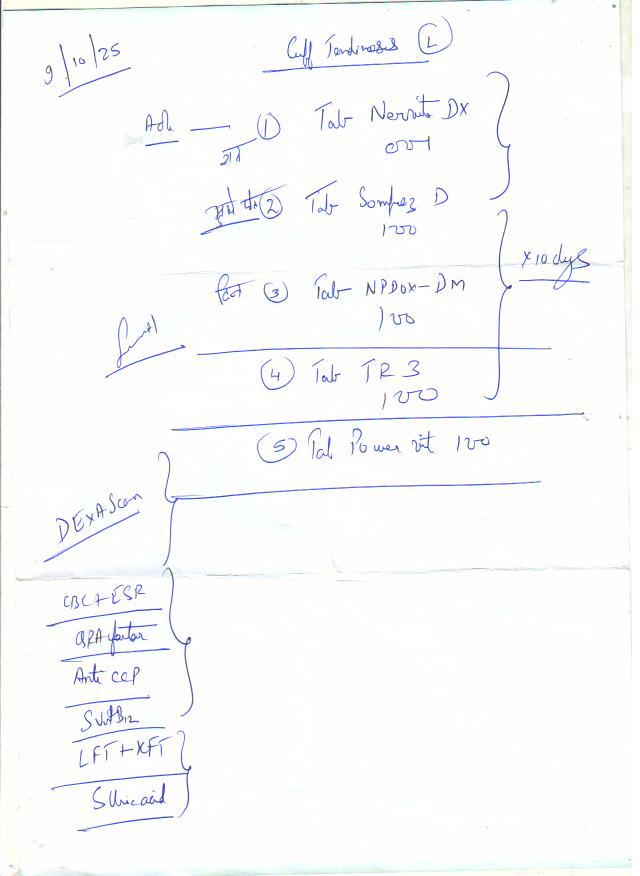 9/10/25
Cuff Tendinosis (L)
Adv
① Tab Nervite DX
रात
001
② Tab Sompraz D
100
दिन ③ Tab NPDOX-DM
100
x 10 dys
④ Tab TR 3
100
⑤ Tab Power vit 100
DEXA Scan
CBC + ESR
QRA factor
Anti CCP
S Vit B12
LFT + KFT
S Uric acid